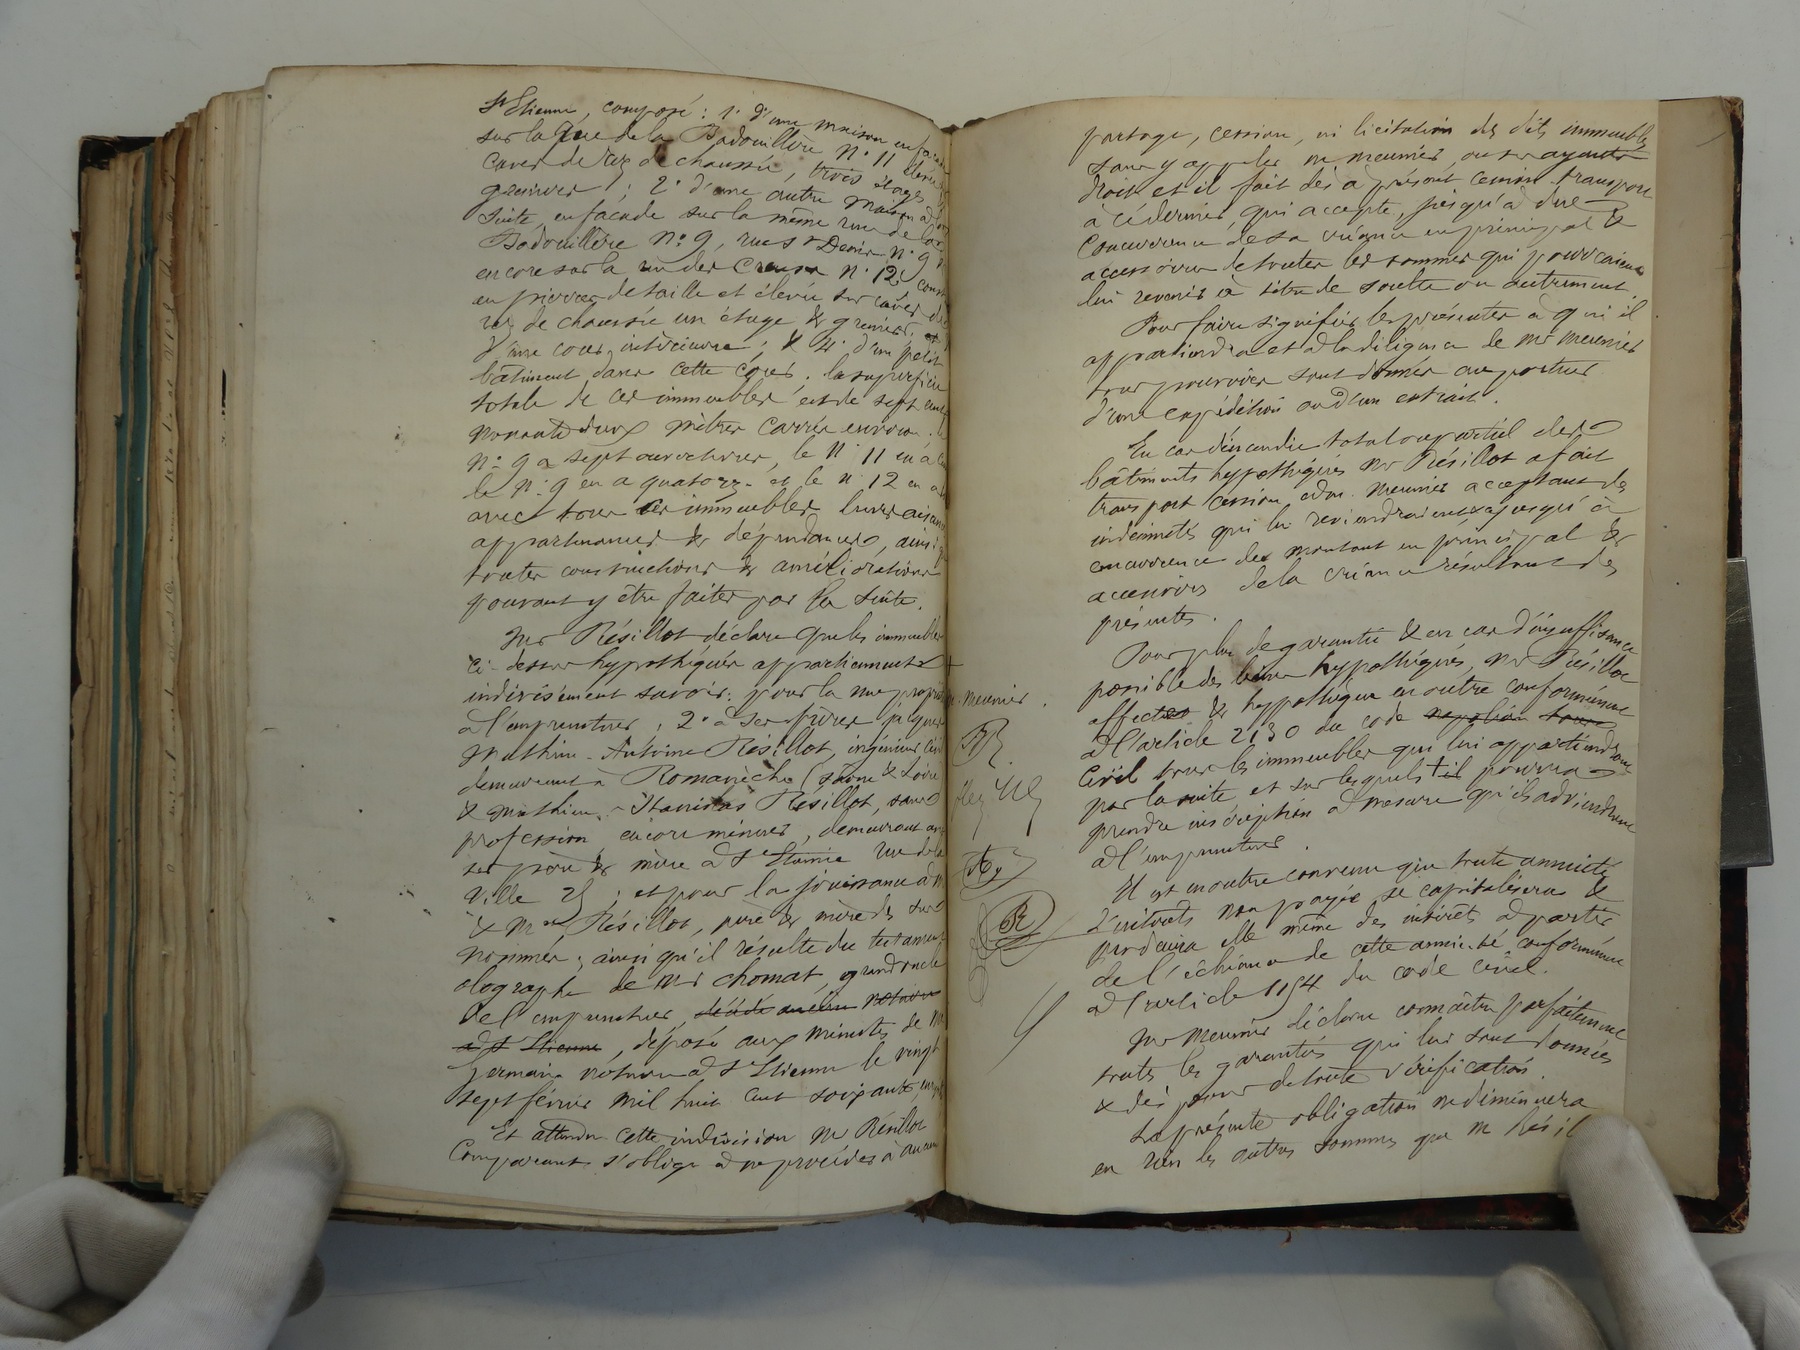 St Etienne, composé : 1° d'une maison en façade
sur la rue de la Badouillère n° 11 élevée
caves de rez de chaussée, trois étages
greniers ; 2° d'une autre maison à la
suite, en façade sur la même rue de la
Badouillère N° 9, rue St Denis N° 9
encore sur la rue des Creuses n° 12, const
en pierres de taille et élevée sur caves de
rez de chaussée un étage & greniers,
d'une cour intérieure ; & 4° d'un petit
bâtiment dans cette cour. la superficie
totale de ces immeubles est de sept cent
nonante deux mètres carrés environ.
N° 9 a sept ouvertures, le N° 11 en a
le N° 9 en a quatorze et le n° 12 en a
avec tous ces immeubles leurs aisances
appartenances & dépendances, ainsi q
toutes constructions & améliorations
pouvant y être faites par la suite.
Mr Résillot déclare que les immeubles
ci-dessus hypothéqués appartiennent
indivisément savoir : pour la nue propriété
à l'emprunteur, 2° à ses frères Jacques
Mathieu-Antoine Résillot, ingénieur civil
demeurant à Romanèche (Saône & Loire
& Mathieu-Stanislas Résillot, sans
profession, encore mineur, demeurant avec
ses père & mère à St Etienne rue de la
Ville 25 ; et pour la jouissance à Mr
& Mme Résillot, père & mère des sus
nommés ; ainsi qu'il résulte du testament
olographe de Mr Chomat, grand oncle
de l'emprunteur, décédé ancien notaire
à St Etienne, déposé aux minutes de Me
Germain notaire à St Etienne le vingt
sept février mil huit cent soixante
Et attendu cette indivision Mr Résillot
Comparant s'oblige à ne procéder à aucun
+
Meunier.
R
partage, cession, ni licitation des dits immeubles
sans y appeler Mr Meunier, ou ses ayants
droit et il fait dès à présent cession transport
à ce dernier, qui accepte, jusqu'à due
Concurrence de sa créance en principal &
accessoires de toutes les sommes qui pourraient
lui revenir à titre de soulte ou autrement.
Pour faire signifier les présentes à qui il
appartiendra et à la diligence de Mr Meunier
tous pouvoirs sont donnés au porteur
d'une expédition ou d'un extrait.
En cas d'incendie total ou partiel des
bâtiments hypothéqués Mr Résillot a fait
transport cession, à Mr Meunier acceptant des
indemnités qui lui reviendraient jusqu'à
concurrence du montant en principal &
accessoires de la créance résultant des
présentes.
Pour plus de garantie & en cas d'insuffisance
possible des biens hypothéqués, Mr Résillot
affecte & hypothèque en outre conformément
à l'article 2130 du code Napoléon tous
Civil tous les immeubles qui lui appartiendront
par la suite, et sur lesquels + il pourra
prendre inscription à mesure qu'ils adviendront
à l'emprunteur.
Il est en outre convenu que toute annuité
d'intérêts non payée se capitalisera &
produira elle même des intérêts à partir
de l'échéance de cette annuité, conformément
à l'article 1154 du code civil.
Mr Meunier déclare connaître parfaitement
toutes les garanties qui lui sont données
La présente obligation ne diminuera
en rien les autres sommes que Mr Résil